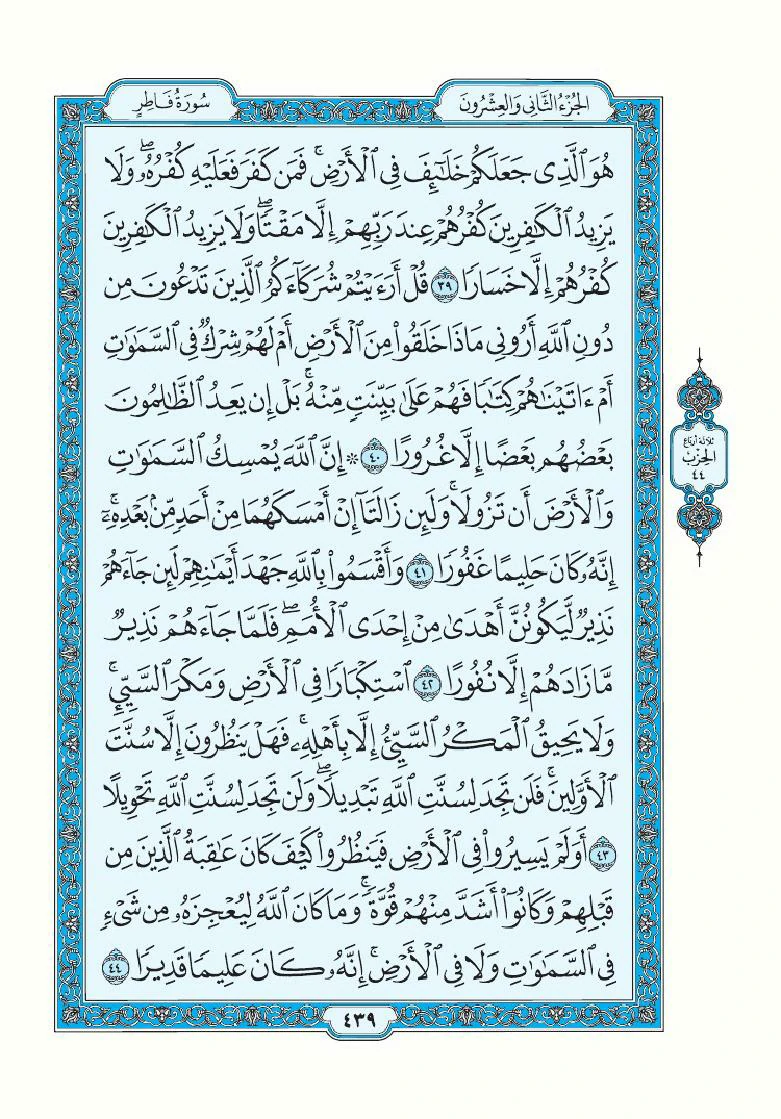 سُورَةُ فَاطِرٍ
الجُزْءُ الثَّانِي وَالعِشْرُونَ
هُوَ ٱلَّذِى جَعَلَكُمْ خَلَـٰٓئِفَ فِى ٱلْأَرْضِ ۚ فَمَن كَفَرَ فَعَلَيْهِ كُفْرُهُۥ ۖ وَلَا
يَزِيدُ ٱلْكَـٰفِرِينَ كُفْرُهُمْ عِندَ رَبِّهِمْ إِلَّا مَقْتًا ۖ وَلَا يَزِيدُ ٱلْكَـٰفِرِينَ
كُفْرُهُمْ إِلَّا خَسَارًا ٣٩ قُلْ أَرَءَيْتُمْ شُرَكَآءَكُمُ ٱلَّذِينَ تَدْعُونَ مِن
دُونِ ٱللَّهِ أَرُونِى مَاذَا خَلَقُوا۟ مِنَ ٱلْأَرْضِ أَمْ لَهُمْ شِرْكٌ فِى ٱلسَّمَـٰوَٰتِ
أَمْ ءَاتَيْنَـٰهُمْ كِتَـٰبًا فَهُمْ عَلَىٰ بَيِّنَتٍ مِّنْهُ ۚ بَلْ إِن يَعِدُ ٱلظَّـٰلِمُونَ
بَعْضُهُم بَعْضًا إِلَّا غُرُورًا ٤٠ ۞ إِنَّ ٱللَّهَ يُمْسِكُ ٱلسَّمَـٰوَٰتِ
وَٱلْأَرْضَ أَن تَزُولَا ۚ وَلَئِن زَالَتَآ إِنْ أَمْسَكَهُمَا مِنْ أَحَدٍ مِّنۢ بَعْدِهِۦٓ ۚ
إِنَّهُۥ كَانَ حَلِيمًا غَفُورًا ٤١ وَأَقْسَمُوا۟ بِٱللَّهِ جَهْدَ أَيْمَـٰنِهِمْ لَئِن جَآءَهُمْ
نَذِيرٌ لَّيَكُونُنَّ أَهْدَىٰ مِنْ إِحْدَى ٱلْأُمَمِ ۖ فَلَمَّا جَآءَهُمْ نَذِيرٌ
مَّا زَادَهُمْ إِلَّا نُفُورًا ٤٢ ٱسْتِكْبَارًا فِى ٱلْأَرْضِ وَمَكْرَ ٱلسَّيِّئِ ۚ
وَلَا يَحِيقُ ٱلْمَكْرُ ٱلسَّيِّئُ إِلَّا بِأَهْلِهِۦ ۚ فَهَلْ يَنظُرُونَ إِلَّا سُنَّتَ
ٱلْأَوَّلِينَ ۚ فَلَن تَجِدَ لِسُنَّتِ ٱللَّهِ تَبْدِيلًا ۖ وَلَن تَجِدَ لِسُنَّتِ ٱللَّهِ تَحْوِيلًا
٤٣ أَوَلَمْ يَسِيرُوا۟ فِى ٱلْأَرْضِ فَيَنظُرُوا۟ كَيْفَ كَانَ عَـٰقِبَةُ ٱلَّذِينَ مِن
قَبْلِهِمْ وَكَانُوٓا۟ أَشَدَّ مِنْهُمْ قُوَّةً ۚ وَمَا كَانَ ٱللَّهُ لِيُعْجِزَهُۥ مِن شَىْءٍ
فِى ٱلسَّمَـٰوَٰتِ وَلَا فِى ٱلْأَرْضِ ۚ إِنَّهُۥ كَانَ عَلِيمًا قَدِيرًا ٤٤
ثلاثة أرباع
الحزب
٤٤
٤٣٩